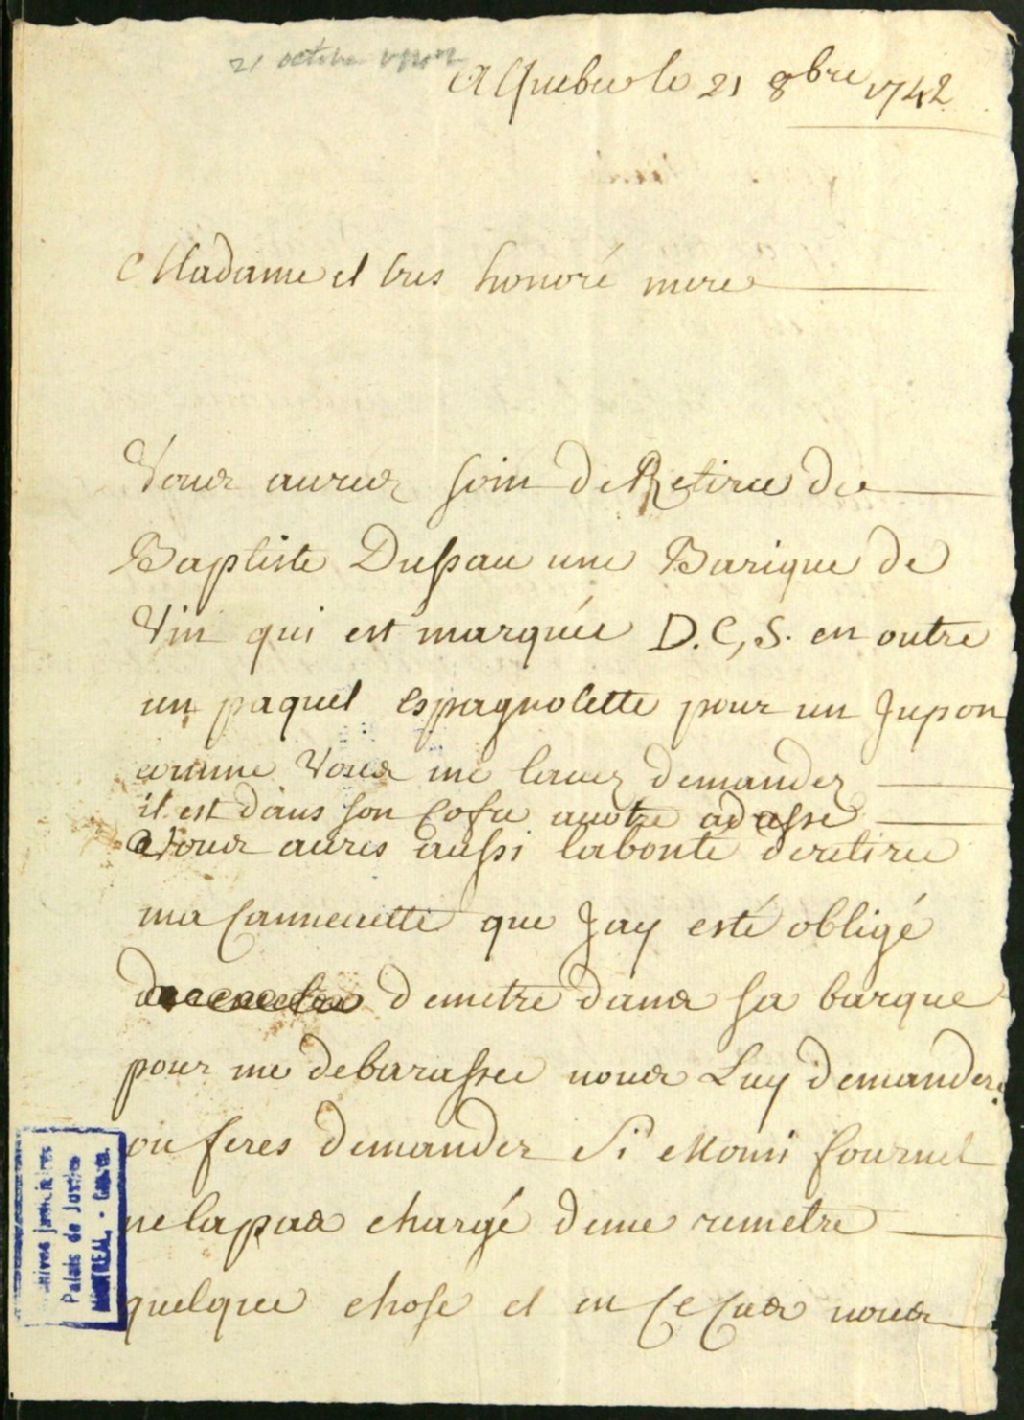 21 octobre 1742
A Quebec le 21 8bre 1742
Madame et tres honoré mere
Vous aurez soin de Retiree de
Baptiste Dussau une Barique de
Vin qui est marquée D.C,S. en outre
un paquet espagnolette pour un Jupon
comme Vous me lavez demandez
il est dans son Cofre avotre adresse
Vous aures aussi labonté deretiree
ma Cannevette que Jay esté obligé
demetre dans sa barque
pour me debarassee vous Luy demandere
ou feres demander Si Monsi fournel
ne lapas chargé deme remetre
quelque chose et en Ce Cas vous
Archives judiciaires
Palais de Justice
MONTREAL, - CANADA.